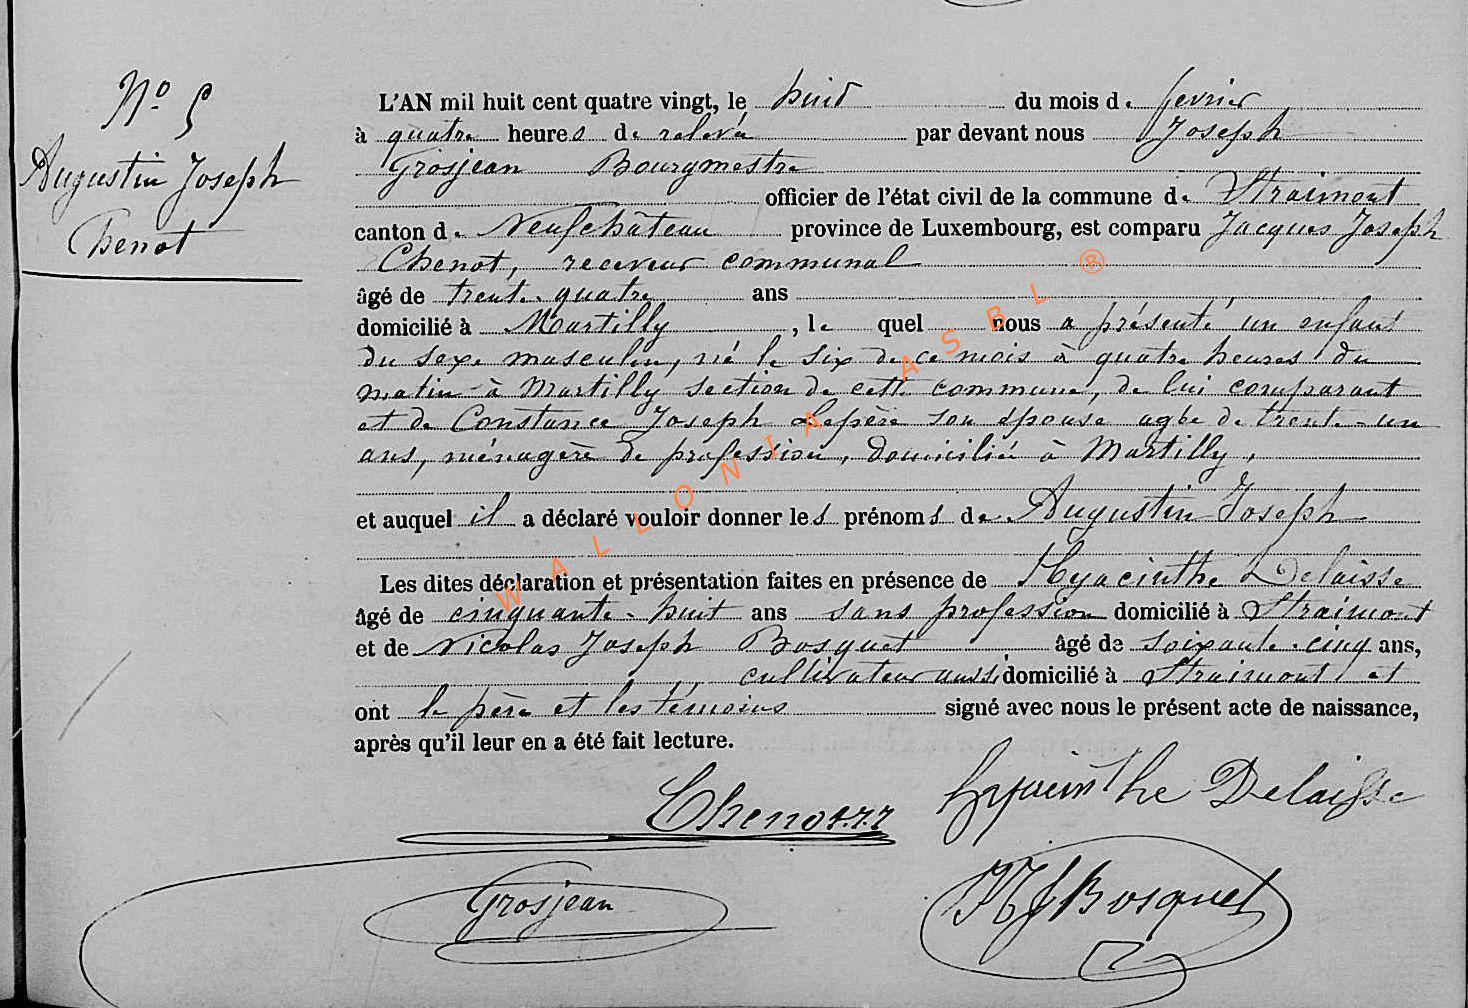 N° 5
Augustin Joseph
Chenot
L'AN mil huit cent quatre vingt, le huit du mois de fevrier
à quatre heures de relevée par devant nous Joseph
Grosjean Bourgmestre
officier de l'état civil de la commune de Straimont
canton de Neufchâteau province de Luxembourg, est comparu Jacques Joseph
Chenot, receveur communal
âgé de trente-quatre ans
domicilié à Martilly, le quel nous a présenté un enfant
du sexe masculin, né le six de ce mois à quatre heures du
matin à Martilly section de cette commune, de lui comparant
et de Constance Joseph Lepère son épouse agée de trente-un
ans, ménagère de profession, domiciliée à Martilly,
et auquel il a déclaré vouloir donner les prénoms de Augustin Joseph
Les dites déclaration et présentation faites en présence de Hyacinthe Delaisse
âgé de cinquante-huit ans sans profession domicilié à Straimont
et de Nicolas Joseph Bosquet âgé de soixante-cinq ans,
cultivateur aussi domicilié à Straimont et
ont le père et les témoins signé avec nous le présent acte de naissance,
après qu'il leur en a été fait lecture.
Chenot J.J. Hyacinthe Delaisse
Grosjean NJBosquet
WALLONIA ASBL ®